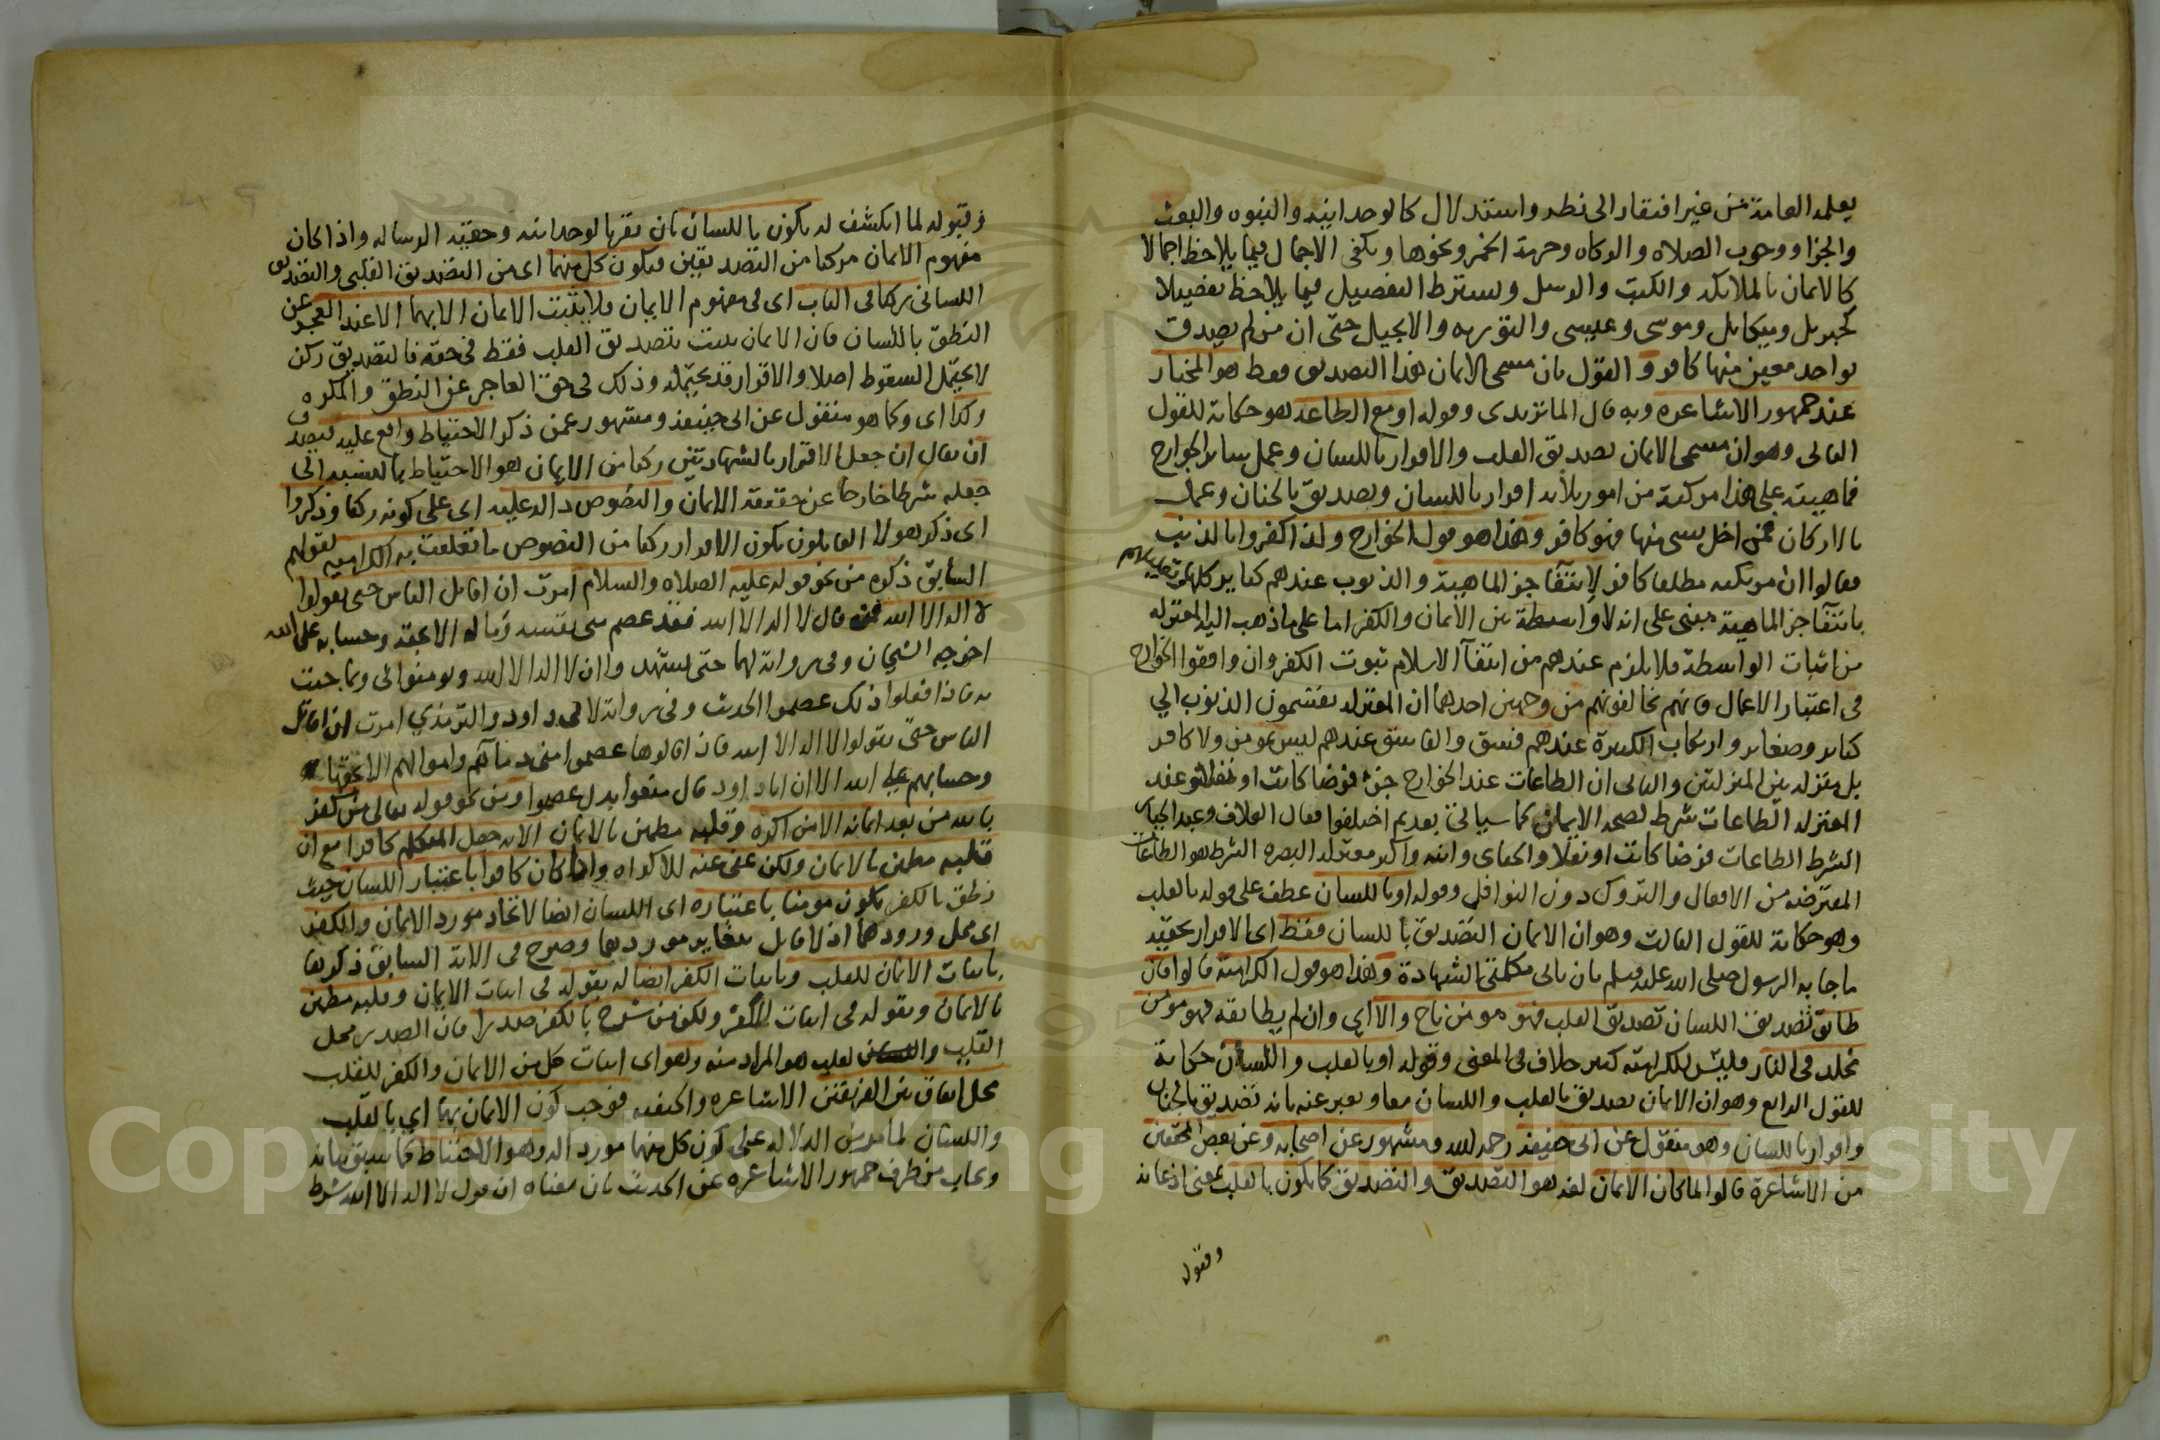 يعلمه العامة من غير افتقار الى نظر واستدلال كالوحدانية والنبوه والبعث
والجزا ووجوب الصلاه والزكاه وحرمة الخمر ونحوها ويكفى الاجمال فيما يلاحظ اجمالا
كالايمان بالملائكه والكتب والرسل ويشترط التفصيل فيما يلاحظ تفصيلا
كجبريل وميكايل وموسى وعيسى والتوريه والانجيل حتى ان من لم يصدق
بواحد معين منها كافر والقول بان مسمى الايمان هذا التصديق فقط هو المختار
عند جمهور الاشاعره وبه قال الماتريدى وقوله او مع الطاعه هو حكاية للقول
الثانى وهو ان مسمى الايمان تصديق القلب والاقرار باللسان وعمل ساير الجوارح
فماهيته على هذا مركبة من امور ثلاثه اقرار باللسان وتصديق بالجنان وعمل
بالاركان فمن اخل بشى منها فهو كافر وهذا هو قول الخوارج ولذا كفروا بالذنب
فقالوا ان مرتكبه مطلقا كافر لانتفآ جز الماهية والذنوب عندهم كباير كلها
بانتفآ جز الماهية مبنى على انه لا واسطة بين الايمان والكفر اما على ما ذهب اليه المعتزله
من اثبات الواسطة فلا يلزم عندهم من انتفآ الاسلام ثبوت الكفر وان وافقوا الخوارج
فى اعتبار الاعمال فانهم يخالفونهم من وجهين احدهما ان المعتزله يقسمون الذنوب الي
كباير وصغاير وارتكاب الكبيرة عندهم فسق والفاسق عندهم ليس بمومن ولا كافر
بل منزله بين المنزلتين والثانى ان الطاعات عند الخوارج جزء فرضا كانت او نفلا وعند
المعتزله الطاعات شرط لصحه الايمان كما سياتى بعد ثم اختلفوا فقال العلاف وعبد الجبار
الشرط الطاعات فرضا كانت او نفلا والجباى وابنه واكثر معتزله البصره الشرط هو الطاعات
المفترضه من الافعال والتروك دون النوافل وقوله او باللسان عطف على قوله بالقلب
وهو حكاية للقول الثالث وهو ان الايمان التصديق باللسان فقط اى الاقرار بحقيه
ما جا به الرسول صلى الله عليه وسلم بان ياتى بكلمتى الشهادة وهذا هو قول الكراميه قالوا فان
طابق تصديق اللسان تصديق القلب فهو مومن ناج والا اى وان لم يطابقه فهو مومن
مخلد فى النار فليس للكراميه كبير خلاف فى المعنى وقوله او بالقلب واللسان حكاية
للقول الرابع وهو ان الايمان تصديق بالقلب واللسان معا ويعبر عنه بانه تصديق بالجنان
واقرار باللسان وهو منقول عن ابى حنيفه رحمه الله ومشهور عن اصحابه وعن بعض المحققين
من الاشاعرة قالوا لما كان الايمان لغه هو التصديق والتصديق كما يكون بالقلب بمعنى اذعانه
وقبوله
وقبوله لما انكشف له يكون باللسان بان يقر بالوحدانيه وحقية الرساله واذا كان
مفهوم الايمان مركبا من التصديقين فيكون كل منهما اى من التصديق القلبى والتصديق
اللسانى ركنا فى الباب اى فى مفهوم الايمان فلا يثبت الايمان الا بهما الا عند العجز عن
النطق باللسان فان الايمان يثبت بتصديق القلب فقط فى حقه فالتصديق ركن
لا يحتمل السقوط اصلا والاقرار قد يحتمله وذلك فى حق العاجز عن النطق والمكره
وكذا اى وكما هو منقول عن ابى حنيفه ومشهور عمن ذكر الاحتياط واقع عليه
ان يقال ان جعل الاقرار بالشهادتين ركنا من الايمان هو الاحتياط بالنسبه الى
جعله شرطا خارجا عن حقيقه الايمان والنصوص داله عليه اى على كونه ركنا وذكروا
اى ذكر هولا القايلون بكون الاقرار ركنا من النصوص ما تعلقت به الكراميه لقولهم
السابق ذكره من نحو قوله عليه الصلاه والسلام امرت ان اقاتل الناس حتى يقولوا
لا اله الا الله فمن قال لا اله الا الله فقد عصم منى نفسه وماله الا بحقه وحسابه على الله
اخرجه الشيخان وفى رواية لهما حتى يشهدوا ان لا اله الا الله ويومنوا بى وبما جئت
به فاذا فعلوا ذلك عصموا الحديث وفى رواية لابى داود والترمذي امرت ان اقاتل
الناس حتى يقولوا لا اله الا الله فاذا قالوها عصموا منى دماهم واموالهم الا بحقها
وحسابهم على الله الا ان ابا داود قال منعوا بدل عصموا ومن نحو قوله تعالى من كفر
بالله من بعد ايمانه الا من اكره وقلبه مطمئن بالايمان الايه جعل المتكلم كافرا مع ان
قلبه مطمئن بالايمان ولكن عفى عنه للاكراه واذا كان كافرا باعتبار اللسان حيث
نطق بالكفر يكون مومنا باعتباره اى اللسان ايضا لاتحاد مورد الايمان والكفر
اى محل ورودهما اذ لا قايل بتغاير موردهما وصرح فى الاية السابق ذكرها
باثبات الايمان للقلب وباثبات الكفر ايضا له بقوله فى اثبات الايمان وقلبه مطمئن
بالايمان وبقوله فى اثبات الكفر ولكن من شرح بالكفر صدرا فان الصدر محل
القلب والقلب هو المراد منه وهو اى اثبات كل من الايمان والكفر للقلب
محل اتفاق بين الفريقين الاشاعره والحنفيه فوجب كون الايمان بهما اي بالقلب
واللسان لما مر من الدلاله على كون كل منهما موردا له وهو الاحتياط كما سبق بيانه
ويجاب من طرف جمهور الاشاعره عن الحديث بان معناه ان قول لا اله الا الله شرط